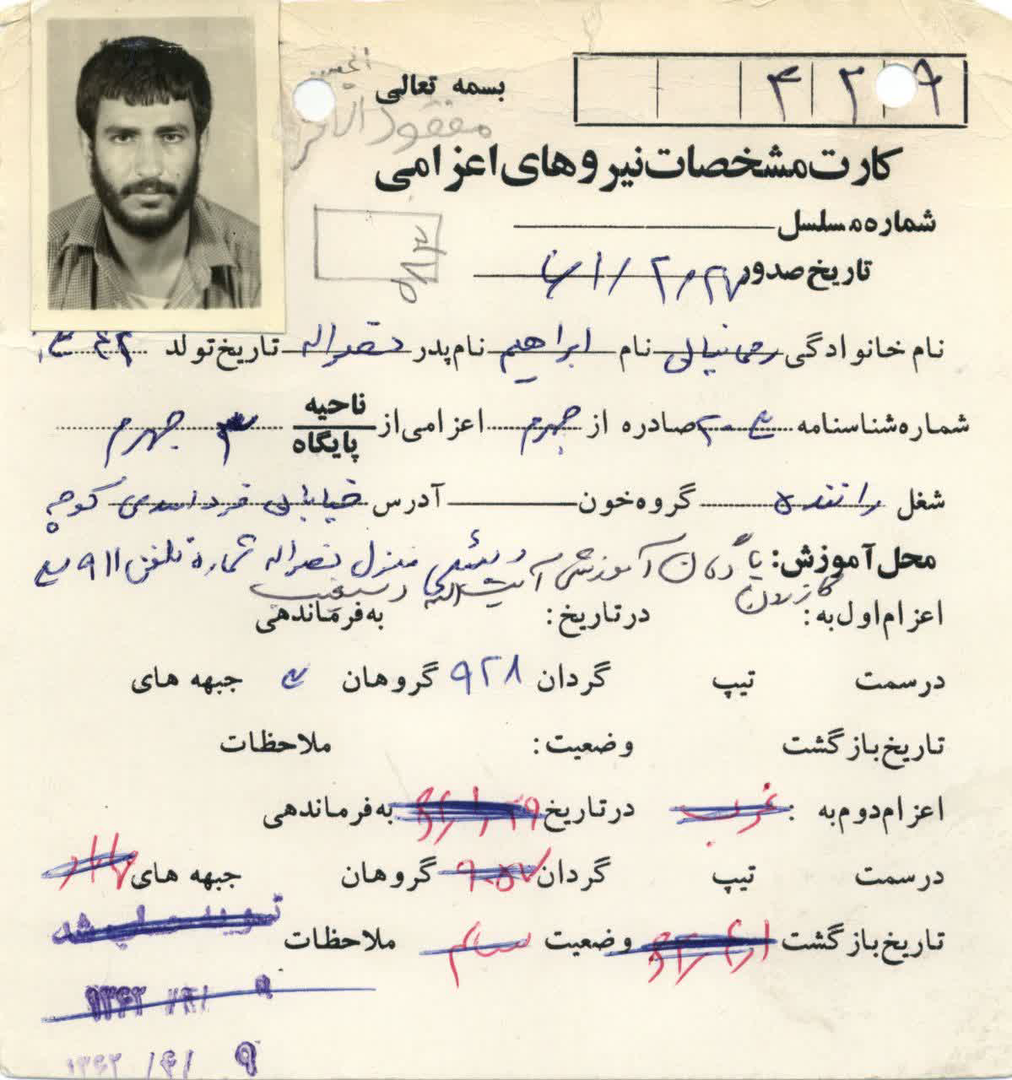 انجمن
بسمه تعالی
۴۲۹
مفقودالاثر
کارت مشخصات نیروهای اعزامی
شماره مسلسل
تاریخ صدور
نام خانوادگی رحمانیانی نام ابراهیم نام پدر نصراله تاریخ تولد
شماره شناسنامه صادره از جهرم اعزامی از ناحیه پایگاه ۳ جهرم
شغل راننده گروه خون آدرس خیابان فردوسی کوچه
محل آموزش: پادگان آموزشی آیت اله دستغیب کازرون
منزل نصراله شماره تلفن
اعزام اول به: در تاریخ: به فرماندهی
در سمت تیپ گردان ۹۲۸ گروهان جبهه های
تاریخ بازگشت وضعیت: ملاحظات
اعزام دوم به: غرب در تاریخ به فرماندهی
در سمت تیپ گردان ۹۰۵۷ گروهان جبهه های
تاریخ بازگشت وضعیت سالم ملاحظات
تسویه حساب شد